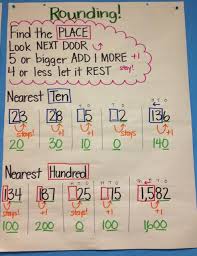 Rounding!
Find the PLACE
Look NEXT DOOR
5 or bigger ADD 1 MORE +1
4 or less let it REST stay!
Nearest Ten
23 28 5 2 136
stays! +1 +1 stays! +1
20 30 10 0 140
Nearest Hundred
134 187 25 75 1,582
stays! +1 stays! +1 +1
100 200 0 100 1600